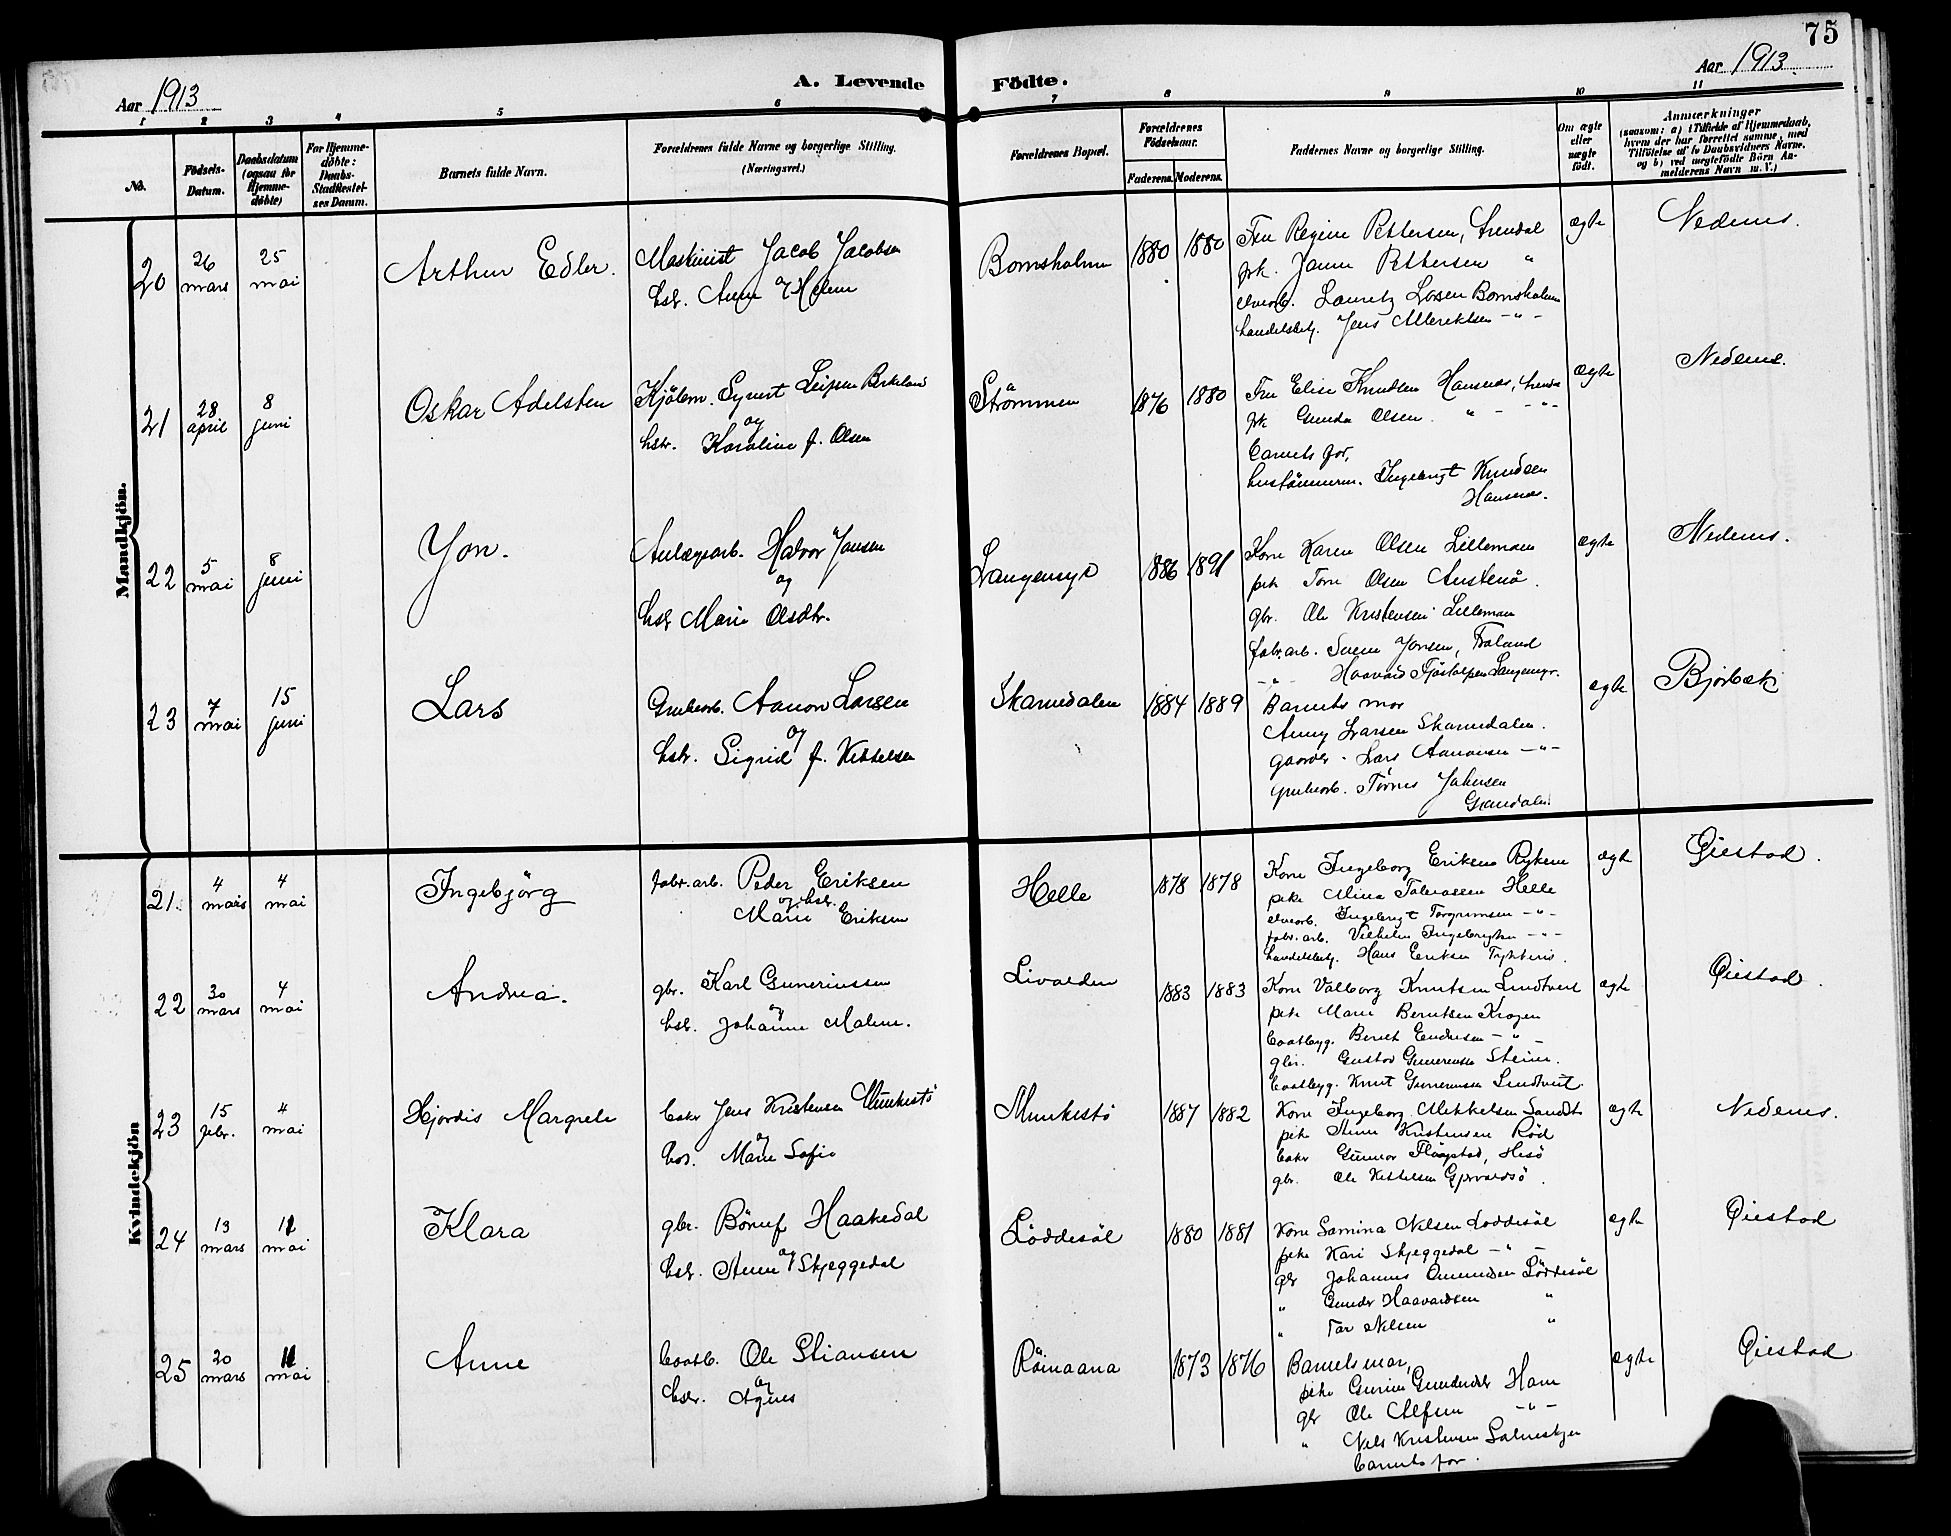 75
Aar 1913
A. Levende Födte.
Aar 1913.
1 2 3 4 5 6 7 8 9 10 11
No.
Födsels-
Datum.
Daabsdatum
(ogsaa for
Hjemme-
döbte)
For Hjemme-
döbte:
Daabs-
Stadfæstel-
ses Datum.
Barnets fulde Navn.
Forældrenes fulde Navne og borgerlige Stilling.
(Næringsvei.)
Forældrenes Bopæl.
Forældrenes
Födselsaar.
Faderens. Moderens.
Faddernes Navne og borgerlige Stilling.
Om ægte
eller
uægte
födt.
Anmærkninger
(saasom: a) i Tilfælde af Hjemmedaab,
hvem der har forrettet samme, med
Tilföielse af to Daabsvidners Navne.
og b) ved uægtefödte Börn An-
melderens Navn m. V.)
Mandkjön.
20
26
mars
25
mai
Arthur Edler.
Maskinist Jacob Jacobsen
og
hstr. Anna Helene
Bomsholmen
1880 1880
Fru Regine Pettersen, Arendal
prk. Janna Pettersen "
elvearb. Lauritz Larsen Bomsholmen
handelsbetj. Jens Albrektsen - " -
ægte
Nedenes.
21
28
april
8
juni
Oskar Adelsten
Kjölem. Syvert Leifsen Birkeland
og
hstr. Karoline f. Olsen
Strömmen
1876 1880
Fru Elise Knudsen Hansnæs,
prk Gunda Olsen. " - - " -
Barnets far,
hustömmerm. Ingebrigt Knudsen
Hansnæs.
ægte
Nedenes.
22
5
mai
8
juni
Jon.
Anlægsarb. Halvor Jonsen
og
hstr Marie Olsdtr.
Langemyr
1886 1891
Kone Karen Olsen Lillemoen
pike Tone Olsen Austenå.
gbr. Ole Kristensen Lillemoen
fabr.arb. Svein Jonsen, Froland
- " - Haavard Langemyr.
ægte
Nedenes.
23
7
mai
15
juni
Lars
Grubearb. Aanon Larsen
og
hstr. Sigrid f. Kittelsen
Skarvedalen
1884 1889
Barnets mor
Anny Larsen Skarvedalen.
gaardbr. Lars Aanonsen - " -
grubearb. Tönnes Jakobsen
ægte
Bjorbæk
Kvindekjön
21.
4
mars
4
mai
Ingebjörg
fabr.arb. Peder Eriksen
og hstr.
Marie Eriksen
Helle
1878 1878
Kone Ingeborg Eriksen Rykene
pike Mina Tobiassen Helle
elvearb. Ingebrigt Torgrimsen - " -
fabr.arb. Vilhelm Ingebrigtsen - " -
handelsbetj. Hans Eriksen
ægte
Öiestad.
22
30
mars
4
mai
Andrea.
gbr. Karl Guneriussen
og
hstr. Johanne Malene.
Livolden
1883 1883
Kone Valborg Knutsen Lindtveit
pike Marie Berntsen Krogen
baatbyg. Bernt Endresen - " -
gbr. Gustav Guneriussen Steine.
baatbyg. Knut Gunerussen Lindtveit.
ægte
Öiestad.
23
15
febr.
4
mai
Hjördis Margrete
baker Jens Kristensen Munkestö
og
hus. Marie Sofie
Munkestö
1887 1882
Kone Ingeborg Mikkelsen
pike Anna Kristensen Röd
baker Gunnar Flingstad, Hisö
gbr. Ole Kittelsen
ægte
Nedenes.
24
13
mars
11
mai
Klara
gbr. Börulf Haakedal
og
hstr. Anne Skjeggedal
Löddesöl
1880 1881
Kone Samina Nilsen Löddesöl
pike Kari Skjeggedal - " -
gbr Johannes Ommundsen Löddesöl
" Gunder Haavardsen "
" Tor Nilsen "
ægte
Öiestad
25
20
mars
11
mai
Anne
baatb. Ole Stiansen
og
hstr. Agnes
Röinaana
1873 1876
Barnets mor,
pike Gurine Gundersdtr Ham
gbr Ole Alfsen - " -
" Nils Kristensen
Barnets far.
ægte
Öiestad